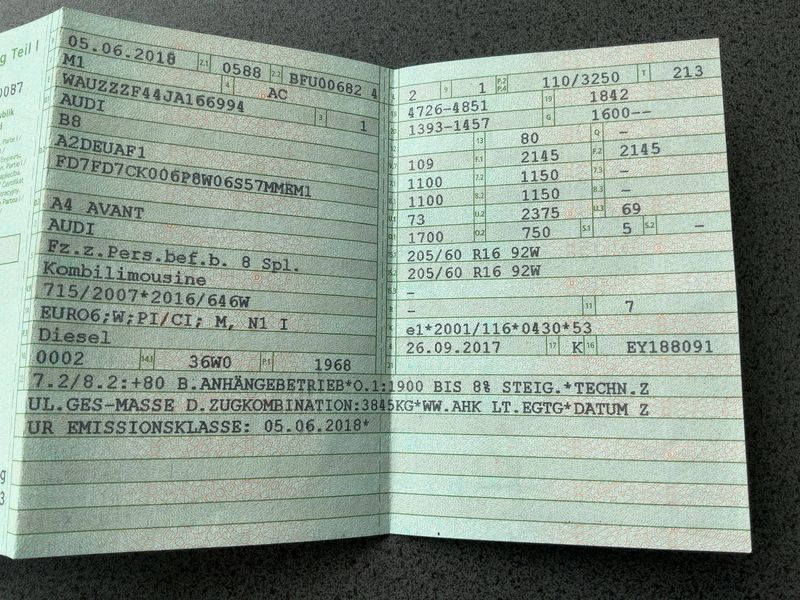 g Teil I
0087
05.06.2018 2.1 0588 2.2 BFU00682 4
M1 4 AC
WAUZZZF44JA166994 3 1
AUDI
B8
A2DEUAF1
FD7FD7CK006P8W06S57MMEM1
A4 AVANT
AUDI
Fz.z.Pers.bef.b. 8 Spl.
Kombilimousine
715/2007*2016/646W
EURO6;W;PI/CI; M, N1 I
Diesel
0002 14.1 36W0 P.1 1968
2 9 1 P.2 P.4 110/3250 T 213
4726-4851 19 1842
1393-1457 G 1600--
13 80 Q -
109 F.1 2145 F.2 2145
1100 7.2 1150 7.3 -
1100 8.2 1150 8.3 -
73 U.2 2375 U.3 69
1700 O.2 750 S.1 5 S.2 -
205/60 R16 92W
205/60 R16 92W
-
- 11 7
e1*2001/116*0430*53
26.09.2017 17 K 16 EY188091
7.2/8.2:+80 B.ANHÄNGEBETRIEB*O.1:1900 BIS 8% STEIG.*TECHN.Z
UL.GES-MASSE D.ZUGKOMBINATION:3845KG*WW.AHK LT.EGTG*DATUM Z
UR EMISSIONSKLASSE: 05.06.2018*